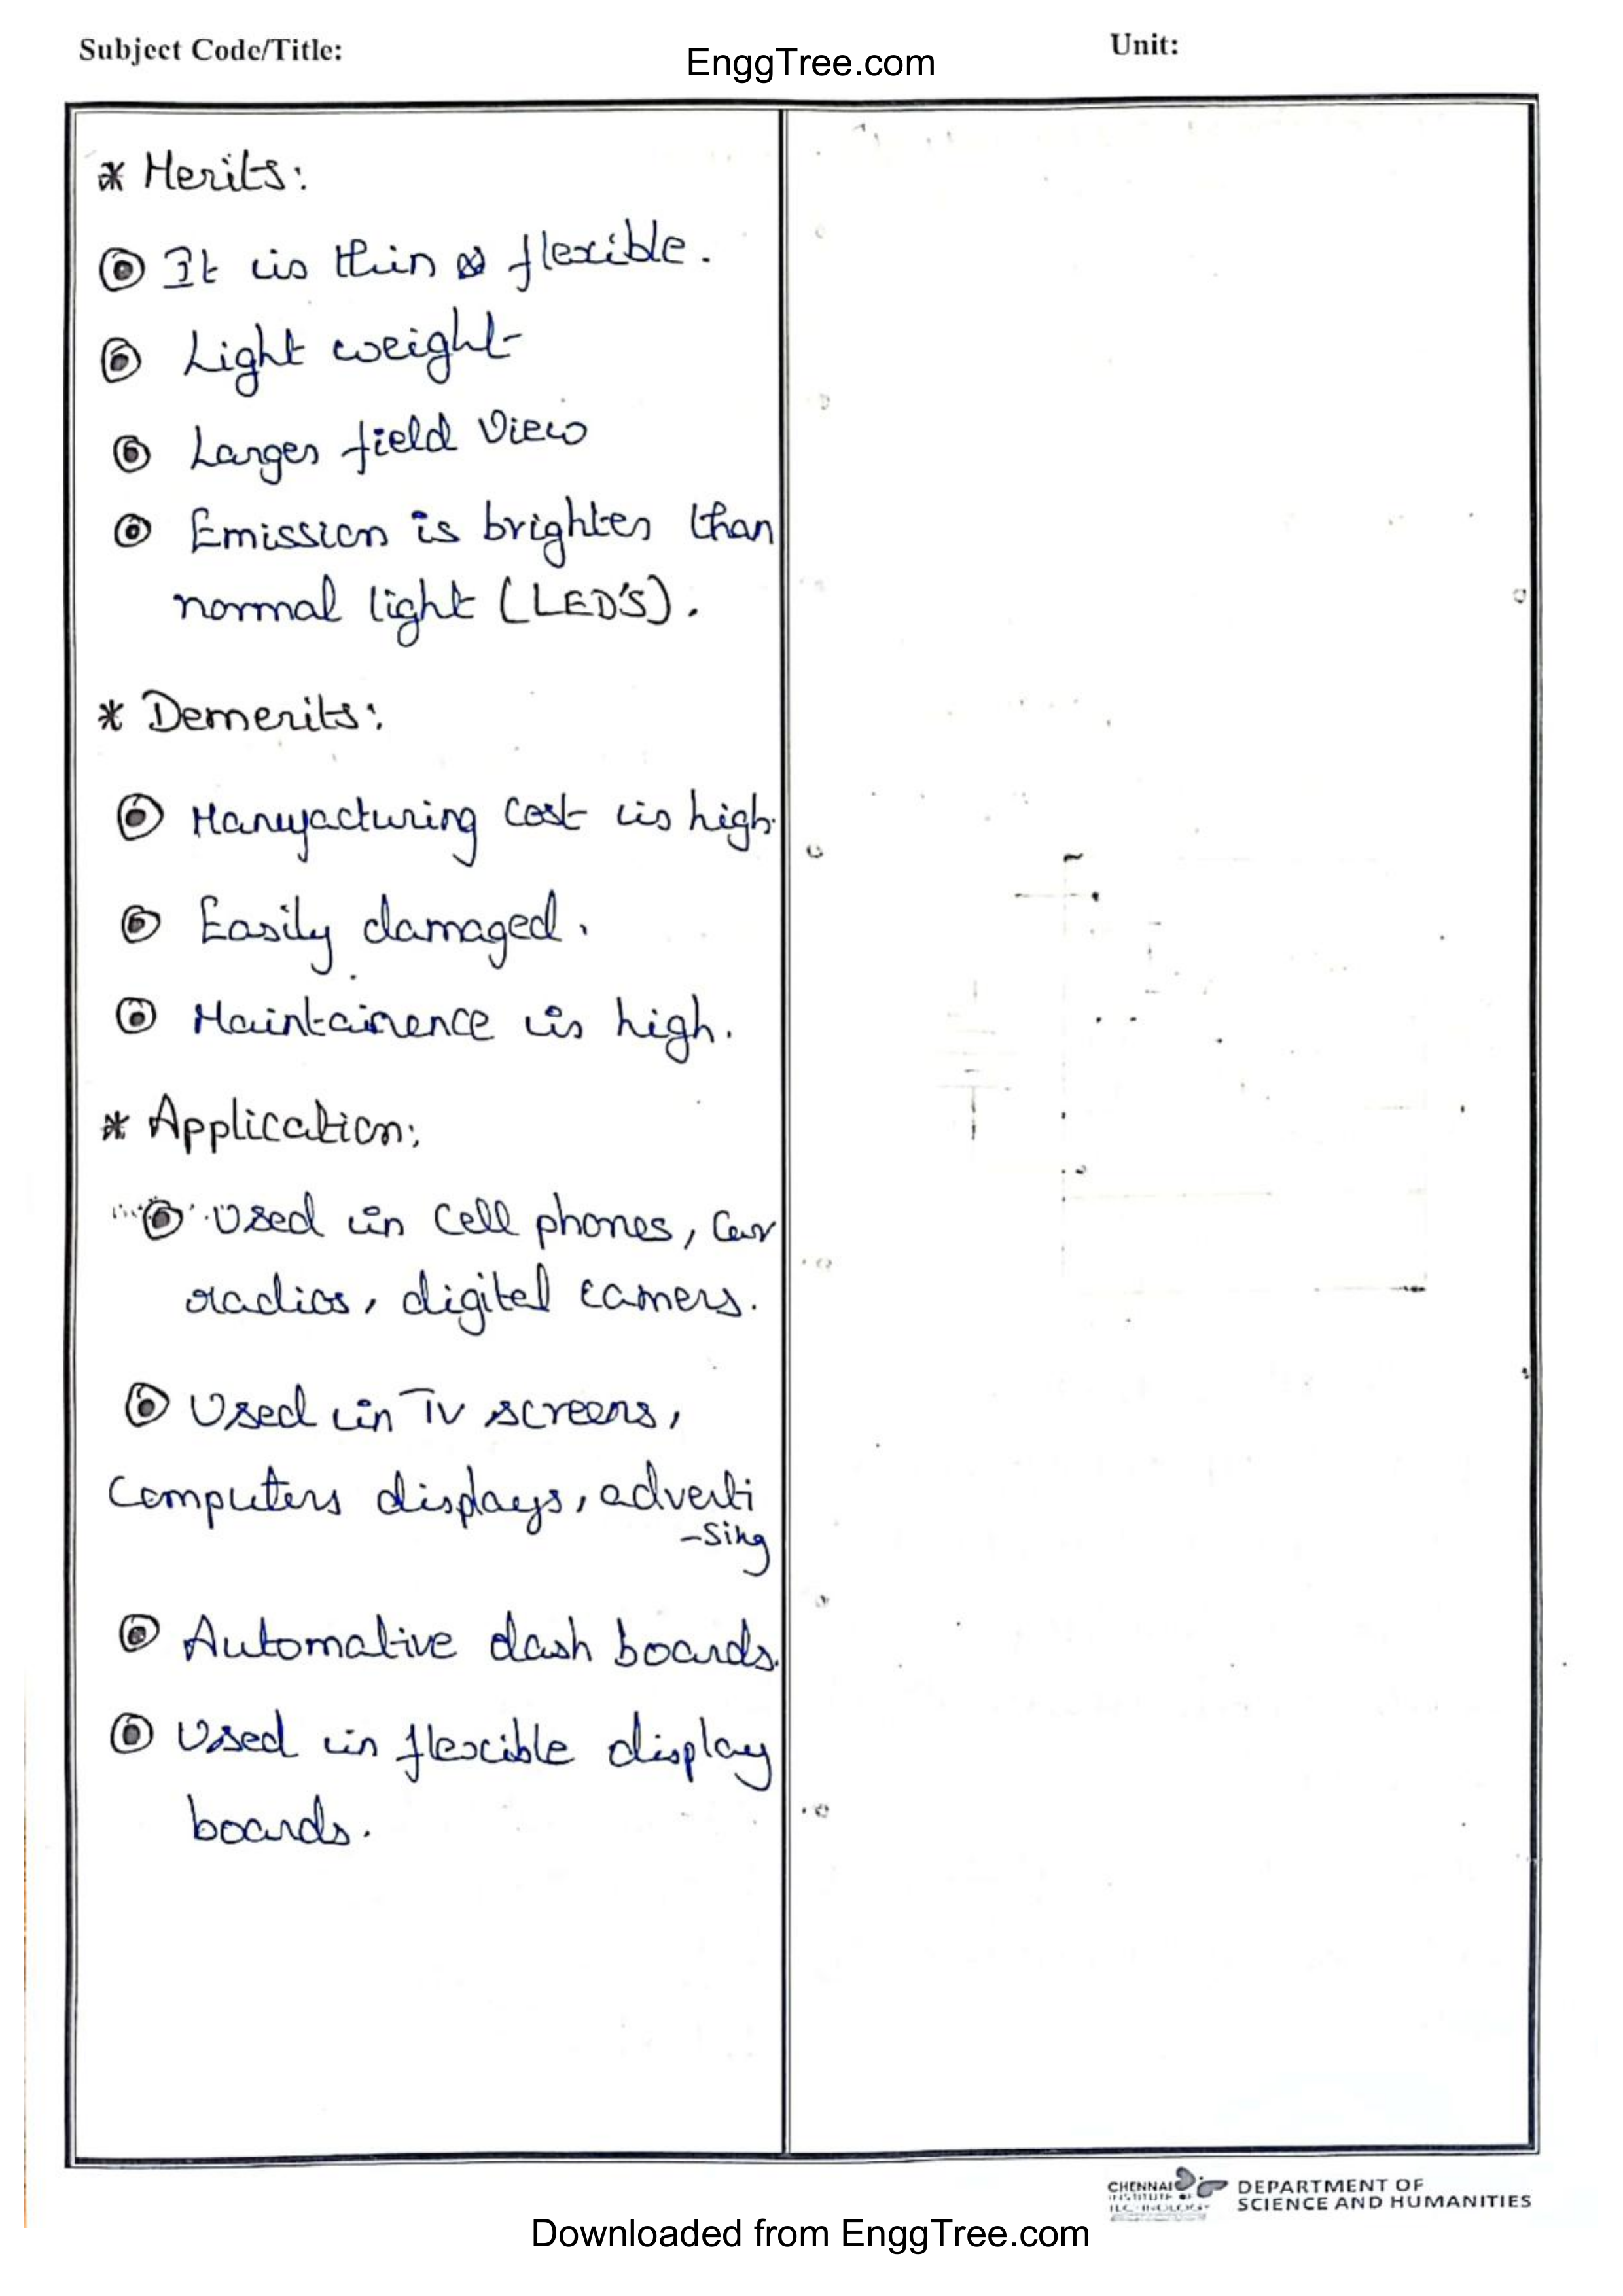 Subject Code/Title:
EnggTree.com
Unit:
* Merits:
It is thin & flexible.
Light weight
Larger field view
Emission is brighter than
normal light (LED'S).
* Demerits:
Manufacturing cost is high.
Easily damaged.
Maintainence is high.
* Application:
Used in cell phones, car
radios, digital camers.
Used in TV screens,
Computers displays, adverti
-sing
Automative dash boards.
Used in flexible display
boards.
CHENNAI
INSTITUTE OF
TECHNOLOGY
DEPARTMENT OF
SCIENCE AND HUMANITIES
Downloaded from EnggTree.com